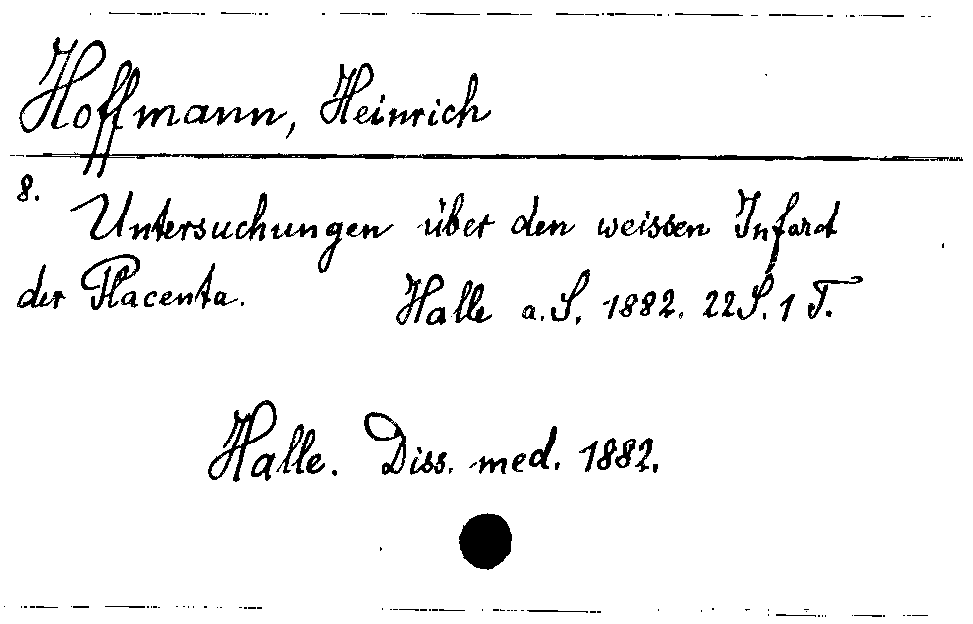 Hoffmann, Heinrich
8.
Untersuchungen über den weissen Infarct
der Placenta. Halle a. S. 1882. 22 S. 1 T.
Halle. Diss. med. 1882.